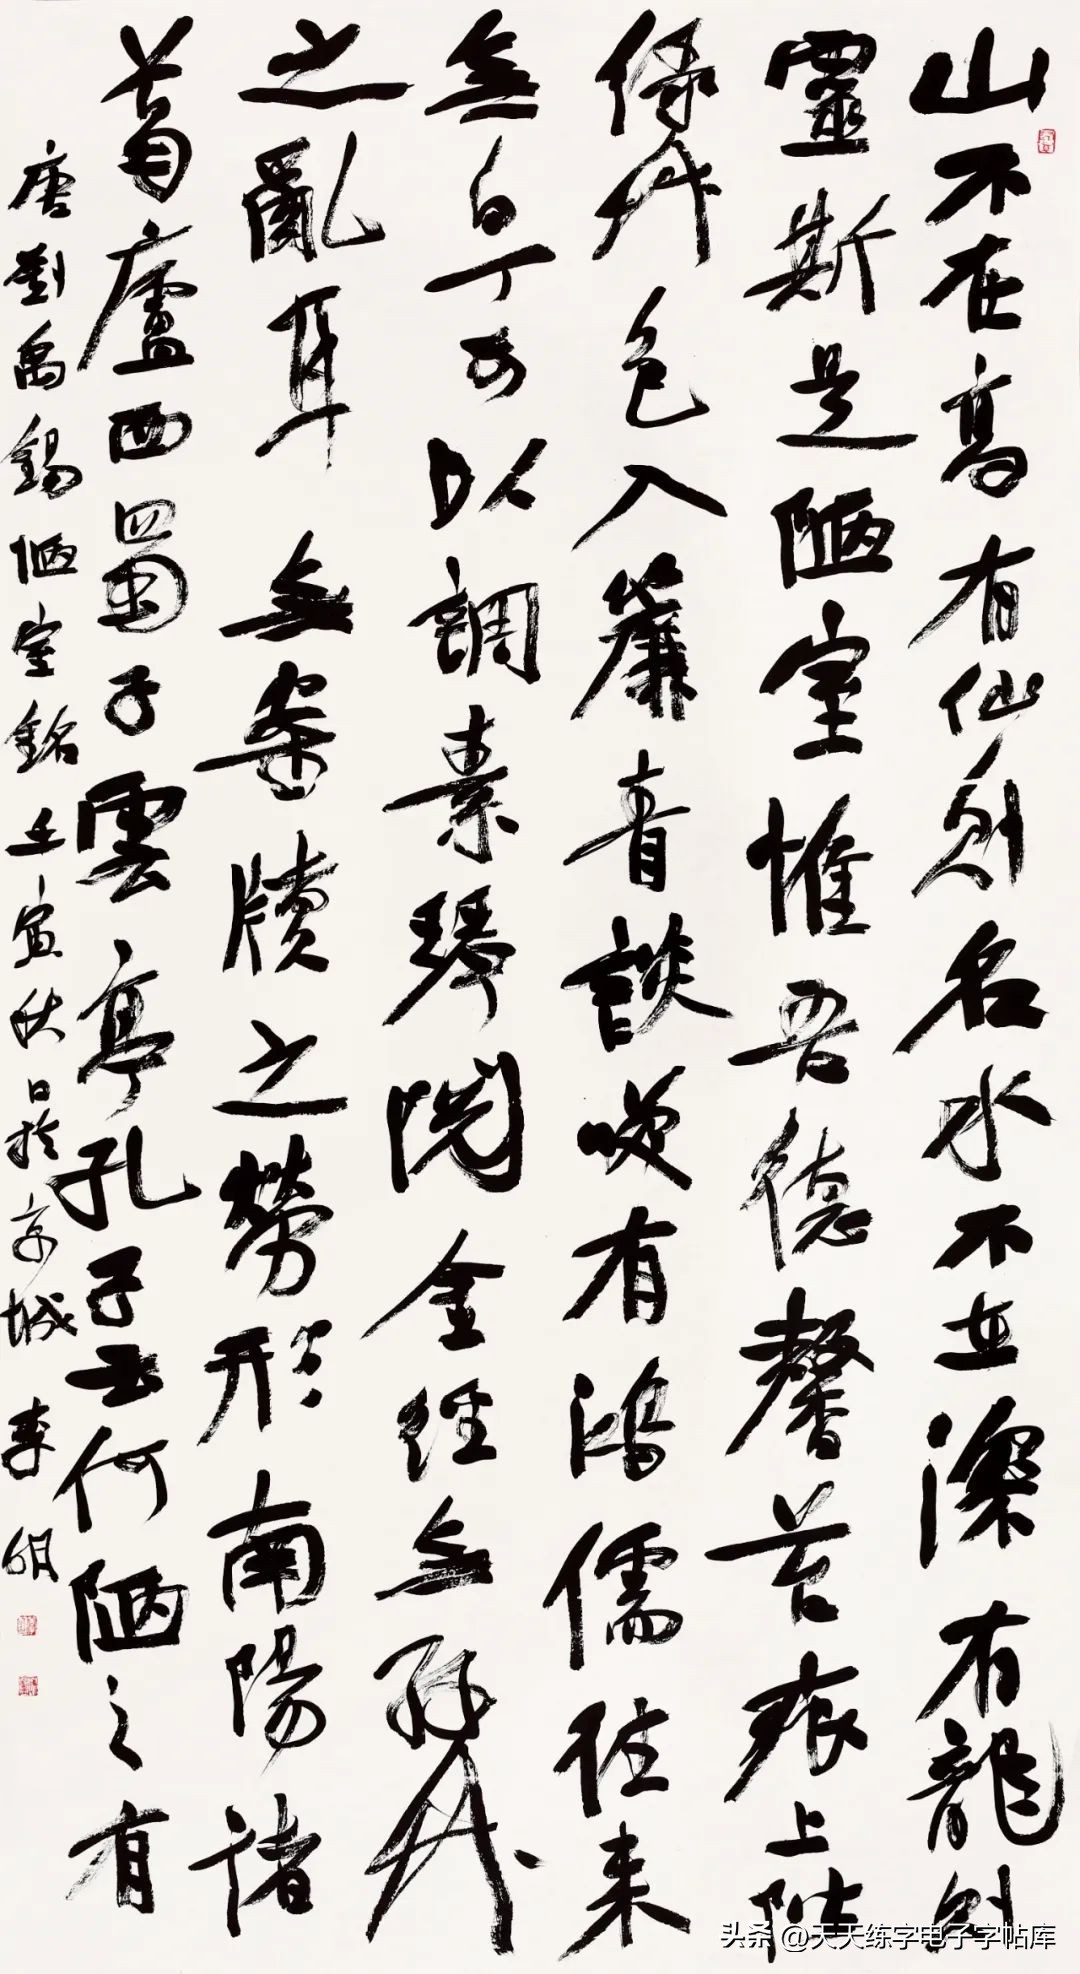 山不在高有仙則名水不在深有龍則
靈斯是陋室惟吾德馨苔痕上階
緑艸色入簾青談咲有鴻儒往来
無白丁可以調素琴閲金經無絲竹
之亂耳無案牘之勞形南陽諸
葛廬西蜀子雲亭孔子云何陋之有
唐劉禹錫陋室銘壬寅秋日於京城李明
头条 @天天练字电子字帖库